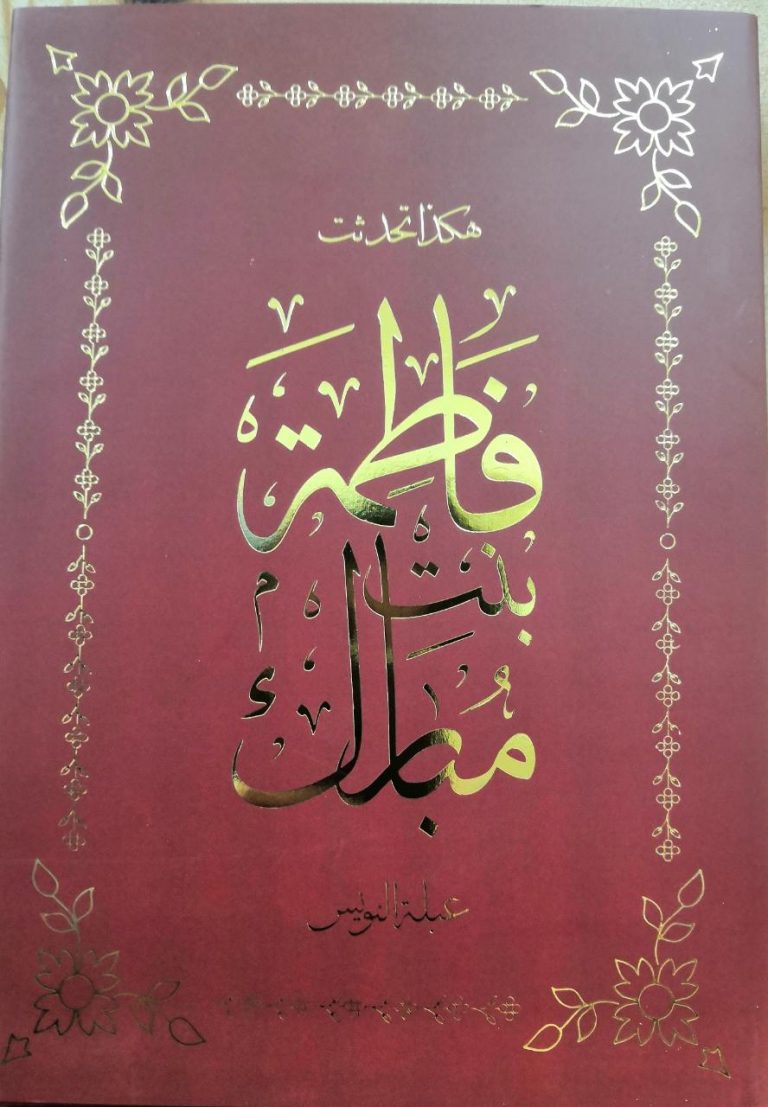 هكذا تحدثت
فَاطِمَة
بنت
مُبارك
عبلة النويس